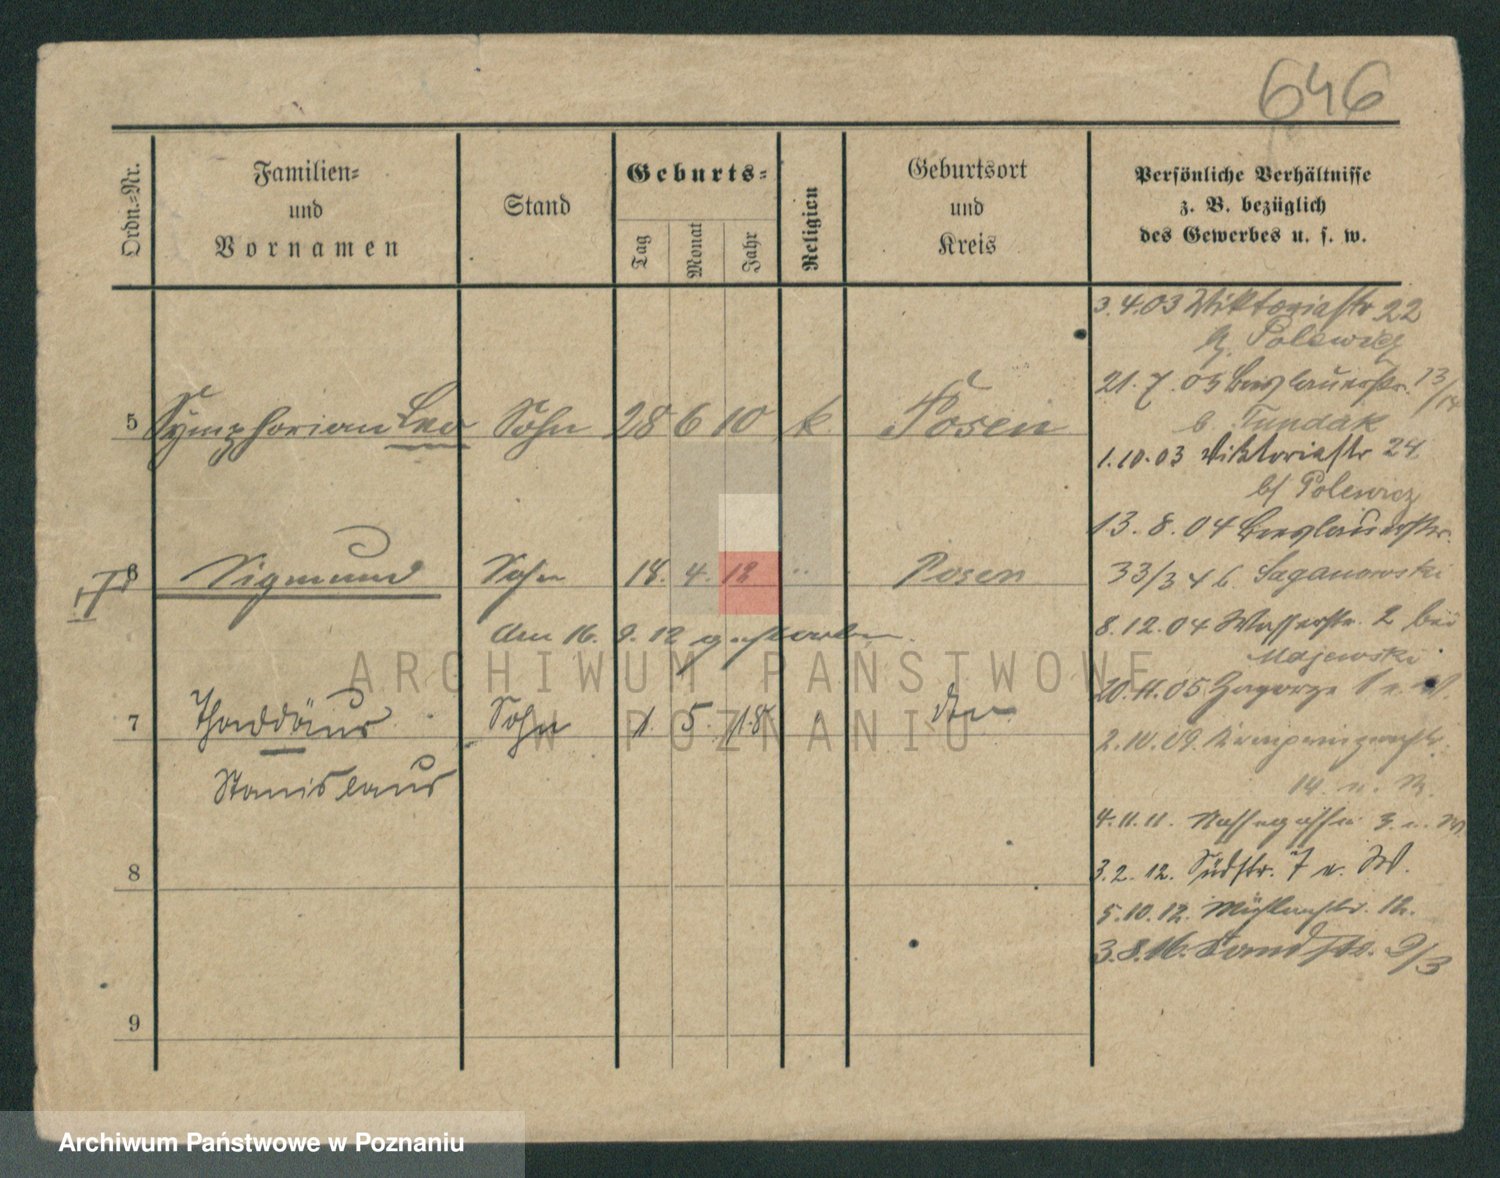 646
Ordn.-Nr.
Familien-
und
Vornamen
Stand
Geburts-
Tag
Monat
Jahr
Religion
Geburtsort
und
Kreis
Persönliche Verhältnisse
z. B. bezüglich
des Gewerbes u. s. w.
5 Symphorian Leo Sohn 28 6 10 k Posen
6 Sigmund Sohn 18. 4. 12 " Posen
am 16. 9. 12 gestorben.
7 Thaddäus Sohn 1. 5. 18
Stanislaus
8
9
3.4.03 Viktoriastr 22
b. Polewicz
21.7.03 Breslauerstr. 13/14
b. Tundak
1.10.03 Viktoriastr 24
b/ Polewicz
13.8.04 Breslauerstr.
33/34 b. Saganowski
8.12.04 Wasserstr. 2 bei
Majewski
20.11.05 Zagorze
2.10.09.
14
4.11.11. Nassegasse 3
3.2.12. Südstr. 7
5.10.12. Mühlenstr. 12.
3.8.16. 2/3
ARCHIWUM PAŃSTWOWE
W POZNANIU
Archiwum Państwowe w Poznaniu